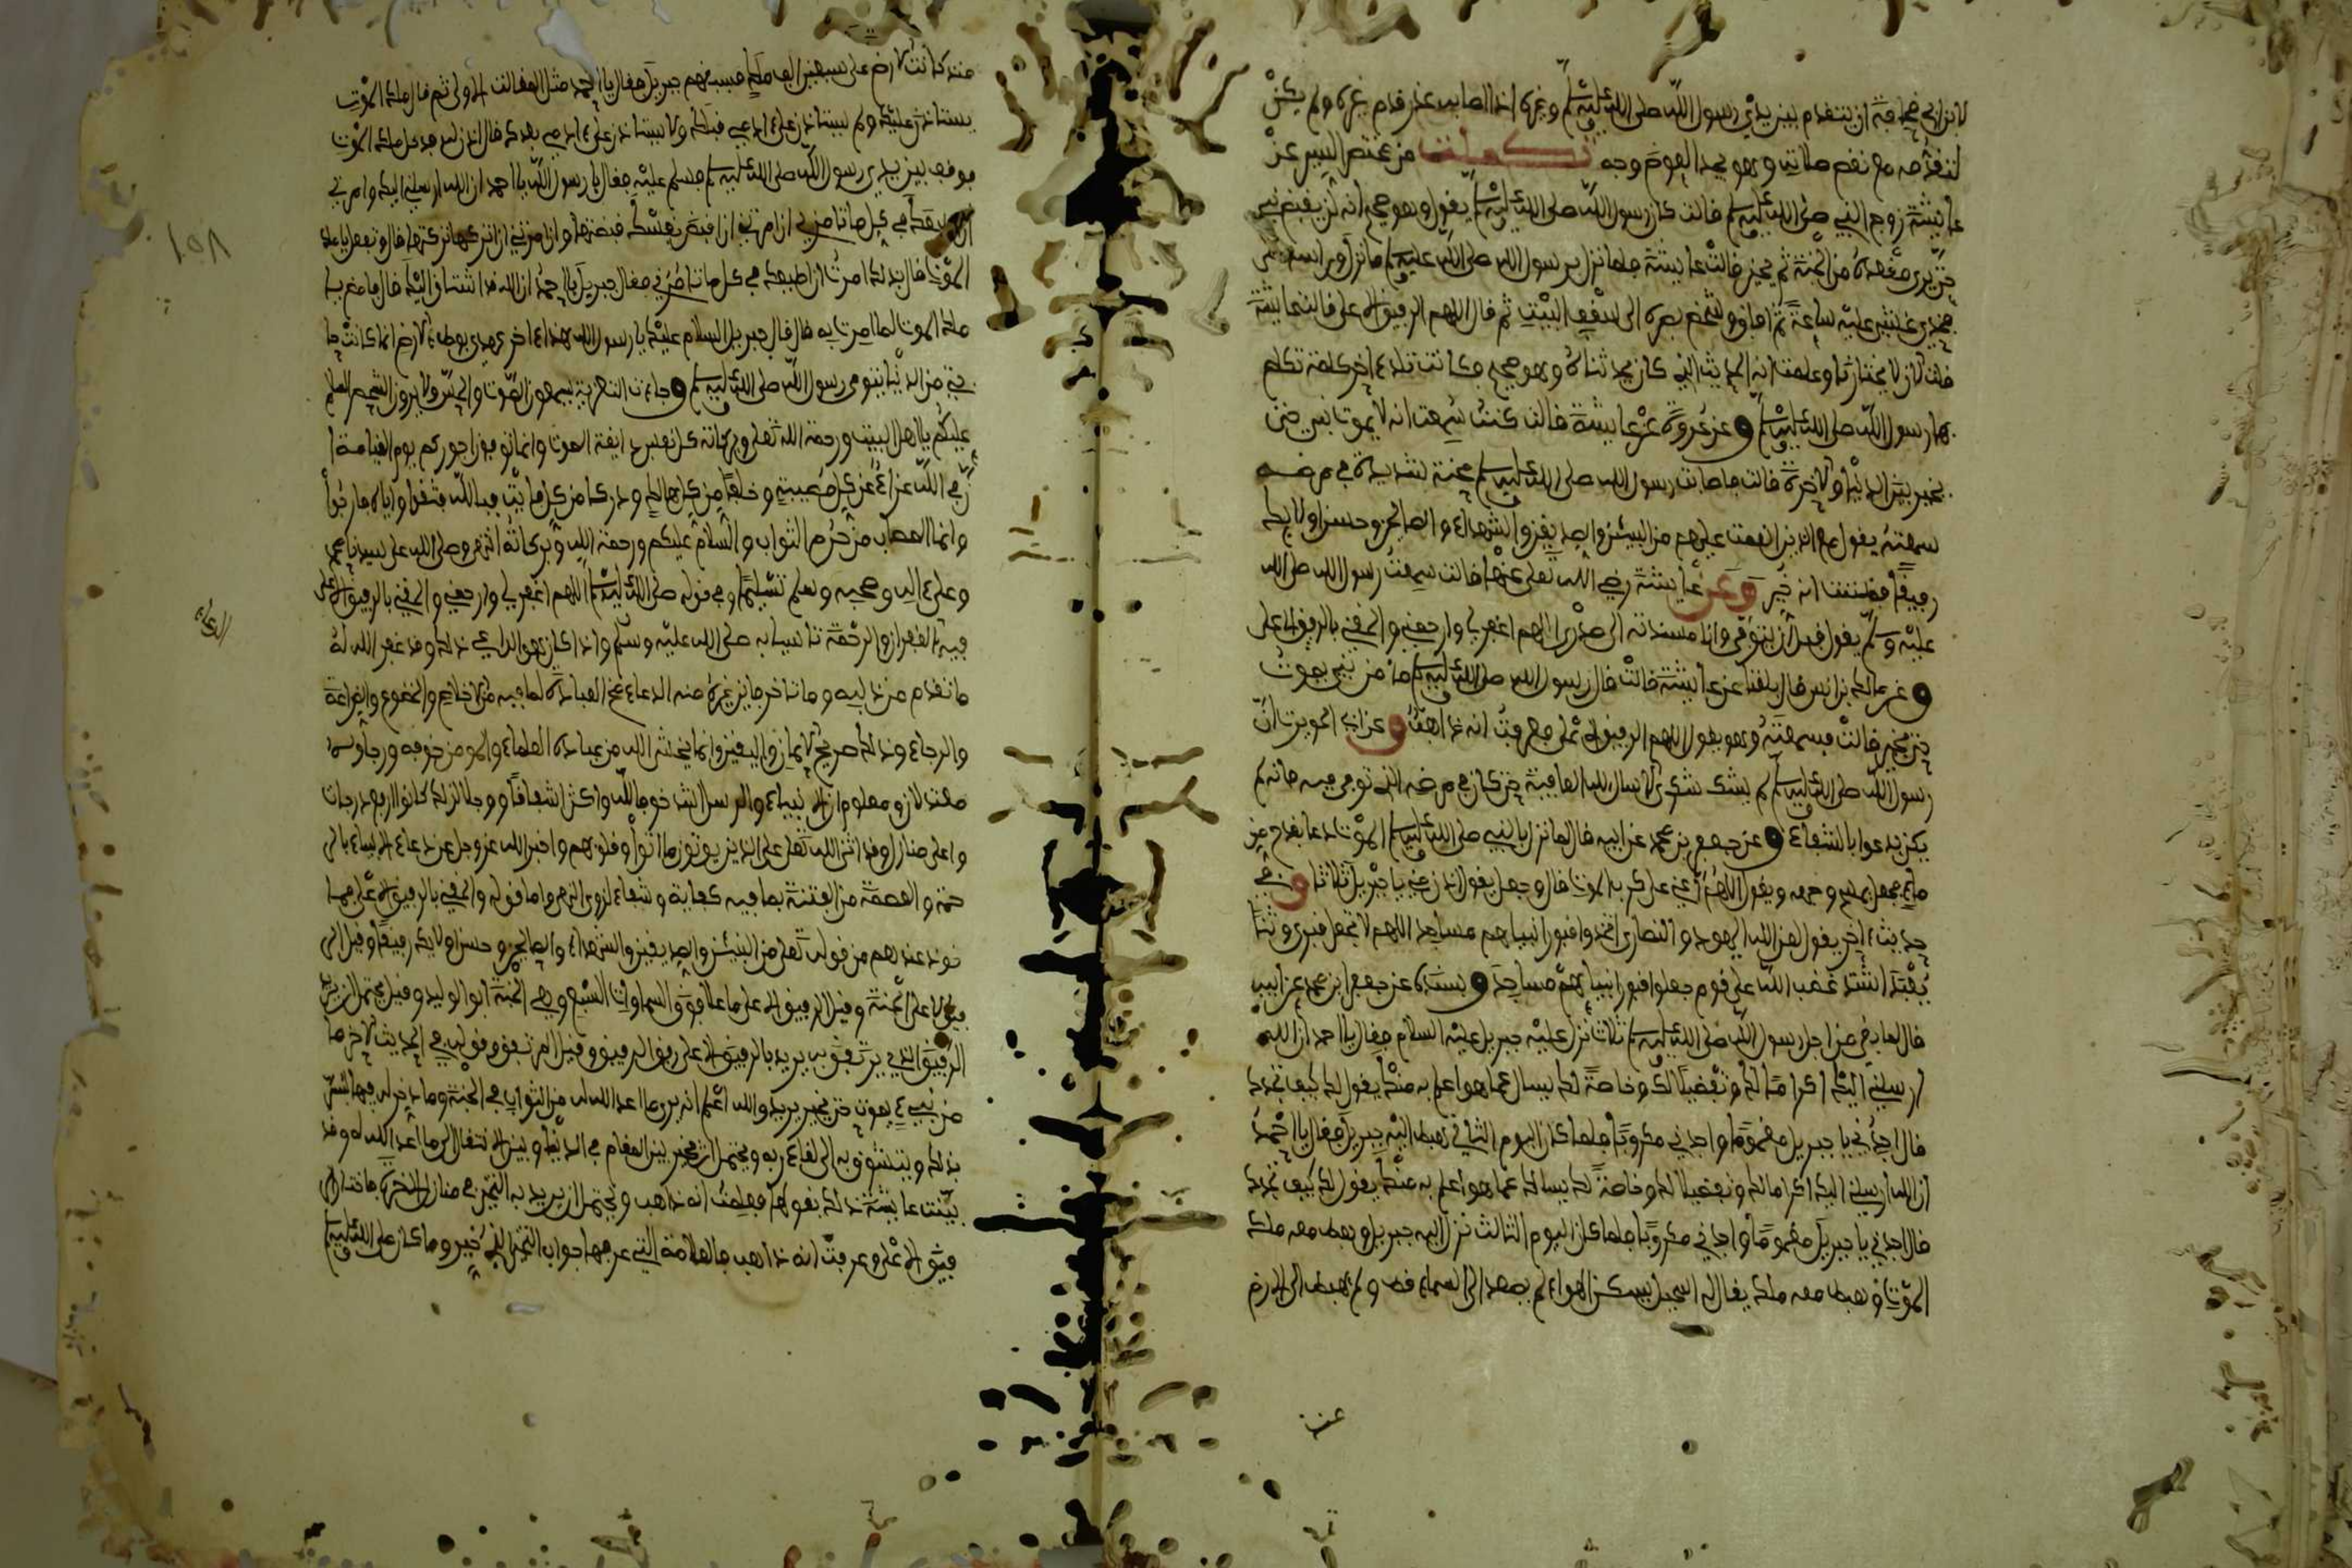 لابن ابي قحافة ان يتقدم بين يدي رسول الله صلى الله عليه وسلم وغيره اذا
لنقصه مع نقص صلاته وهو يحد القوم وجه تكملت من مختصر السير عن
عايشة زوج النبي صلى الله عليه وسلم قالت كان رسول الله صلى الله عليه وسلم يقول وهو صحيح انه لن يقبض نبي
حتى يرى مقعده من الجنة ثم يخير قالت عايشة فلما نزل برسول الله صلى الله عليه وسلم
فخذي غشي عليه ساعة ثم افاق وشخص بصره الى سقف البيت ثم قال اللهم الرفيق الاعلى قالت عايشة
قلت لان لا يختارنا وعلمت انه الحديث الذي كان يحدثناه وهو صحيح فكانت تلك ءاخر كلمة تكلم
بها رسول الله صلى الله عليه وسلم وعن عروة عن عايشة قالت كنت سمعت انه لا يموت نبي حتى
يخير بين الدنيا والاخرة قالت فاصابت رسول الله صلى الله عليه وسلم بحة شديدة في مرضه
سمعته يقول مع الذين انعمت عليهم من النبيئين والصديقين والشهداء والصالحين وحسن اولايك
رفيقا فظننت انه خير وعن عايشة رضي الله تعلى عنها قالت سمعت رسول الله صلى الله
عليه وسلم يقول قبل ان يتوفى وانا مسندته الى صدري اللهم اغفر لي وارحمني والحقني بالرفيق الاعلى
وعن مالك بن انس قال بلغنا عن عايشة قالت قال رسول الله صلى الله عليه وسلم ما من نبي يموت
حتى يخير قالت فسمعته وهو يقول اللهم الرفيق الاعلى فعرفت انه ذاهب وعن ابي الحويرث ان
رسول الله صلى الله عليه وسلم لم يشك شكوى الا سال الله العافية حتى كان في مرضه الذي توفي فيه فانه لم
يكن يدعوا بالشفاء وعن جعفر بن محمد عن ابيه قال لما نزل بالنبي صلى الله عليه وسلم الموت دعا بقدح من
ماء فجعل يمسح وجهه ويقول اللهم اعني على كرب الموت قال وجعل يقول ادن مني يا جبريل ثلاثا وفي
حديث ءاخر يقول لعن الله اليهود والنصارى اتخذوا قبور انبياهم مساجد اللهم لا تجعل قبري وثنا
يعبد اشتد غضب الله على قوم جعلوا قبور انبياهم مساجد وبسنده عن جعفر ابن محمد عن ابيه
قال لما بقي من اجل رسول الله صلى الله عليه وسلم ثلاث نزل عليه جبريل عليه السلام فقال يا احمد ان الله
ارسلني اليك اكراما لك وتفضيلا لك وخاصة لك يسالك عما هو اعلم به منك يقول لك كيف تجدك
قال اجدني يا جبريل مغموما واجدني مكروبا فلما كان اليوم الثاني هبط اليه جبريل فقال يا احمد
ان الله ارسلني اليك اكراما لك وتفضيلا لك وخاصة لك يسالك عما هو اعلم به منك يقول لك كيف تجدك
قال اجدني يا جبريل مغموما واجدني مكروبا فلما كان اليوم الثالث نزل اليه جبريل وهبط معه ملك
الموت وهبط معه ملك يقال له اسمعيل يسكن الهواء لم يصعد الى السماء قط ولم يهبط الى الارض
منذ كانت الارض على سبعين الف ملك فسبقهم جبريل فقال يا احمد مثل المقالة الاولى ثم قال ملك الموت
يستاذن عليك ولم يستاذن على ءادمي قبلك ولا يستاذن على ءادمي بعدك قال ايذن له فدخل ملك الموت
فوقف بين يدي رسول الله صلى الله عليه وسلم فسلم عليه فقال يا رسول الله يا احمد ان الله ارسلني اليك وامرني
في كل ما تامرني ان امرتني ان اقبض نفسك قبضتها وان امرتني ان اتركها تركتها قال وتفعل يا ملك
الموت قال بذلك امرت ان اطيعك في كل ما تامرني فقال جبريل يا احمد ان الله قد اشتاق اليك قال فامض يا
ملك الموت لما امرت به قال قال جبريل السلام عليك يا رسول الله هذا ءاخر عهدي بوطء الارض انما كانت حا
جتي من الدنيا فتوفي رسول الله صلى الله عليه وسلم وجاءت التعزية يسمعون الصوت والحس ولا يرون الشخص السلام
عليكم يا اهل البيت ورحمة الله تعلى وبركاته كل نفس ذايقة الموت وانما توفون اجوركم يوم القيامة
ان في الله عزاء عن كل مصيبة وخلفا من كل هالك ودركا من كل فايت فبالله فثقوا واياه فارجوا
وانما المصاب من حرم الثواب والسلام عليكم ورحمة الله وبركاته انتهى وصلى الله على سيدنا محمد
وعلى ءاله وصحبه وسلم تسليما وفي قوله صلى الله عليه وسلم اللهم اغفر لي وارحمني والحقني بالرفيق الاعلى
فيه الغفران والرحمة تاسيا به صلى الله عليه وسلم واذا كان هو الداعي بذلك وقد غفر الله له
ما تقدم من ذنبه وما تاخر فاين غيره منه الدعاء مخ العبادة لما فيه من الاخلاص والخضوع والضراعة
والرجاء وذلك صريح الايمان واليقين وانما يخشى الله من عباده العلماء والمومن خوفه ورجاوه
معتدلان ومعلوم ان الانبياء والرسل اشد خوفا لله واكثر اشفاقا ووجلا لذلك كانوا ارفع درجات
واعلى منازل وقد اثنى الله تعلى على الذين يوتون ما اتوا وقلوبهم واخبر الله عز وجل عن دعاء الانبياء بالر
حمة والعصمة من الفتنة بما فيه كفاية وشفاء واما قوله والحقني بالرفيق الاعلى فهما
خوذ عندهم من قوله تعلى من النبيئن والصديقين والشهداء والصالحين وحسن اولايك رفيقا وقيل الر
فيق الاعلى الجنة وقيل الرفيق الاعلى ما علا فوق السماوات السبع وهي الجنة ابو الوليد وقيل يحتمل ان يريد
الرفيق الذي يرتفق به يريد بالرفيق الاعلى وقيل المرتفق وقوله في الحديث الاخر ما
من نبيء يموت حتى يخير يريد والله اعلم انه يرى ما اعد الله له من الثواب في الجنة وما يدخر له فيها فيسر
بذلك ويتشوق به الى لقاء ربه ويحتمل ان يخير بين المقام في الدنيا وبين الانتقال الى ما اعد الله له وقد
بينت عايشة ذلك بقولها فعلمت انه ذاهب ويحتمل ان يريد به التخير في منازل الاخرة فاختار الر
فيق الاعلى وعرفت انه ذاهب بالعلامة التي عرفها جواب التخير الذي خير وما كان صلى الله عليه وسلم
١٥٨
الدعاء